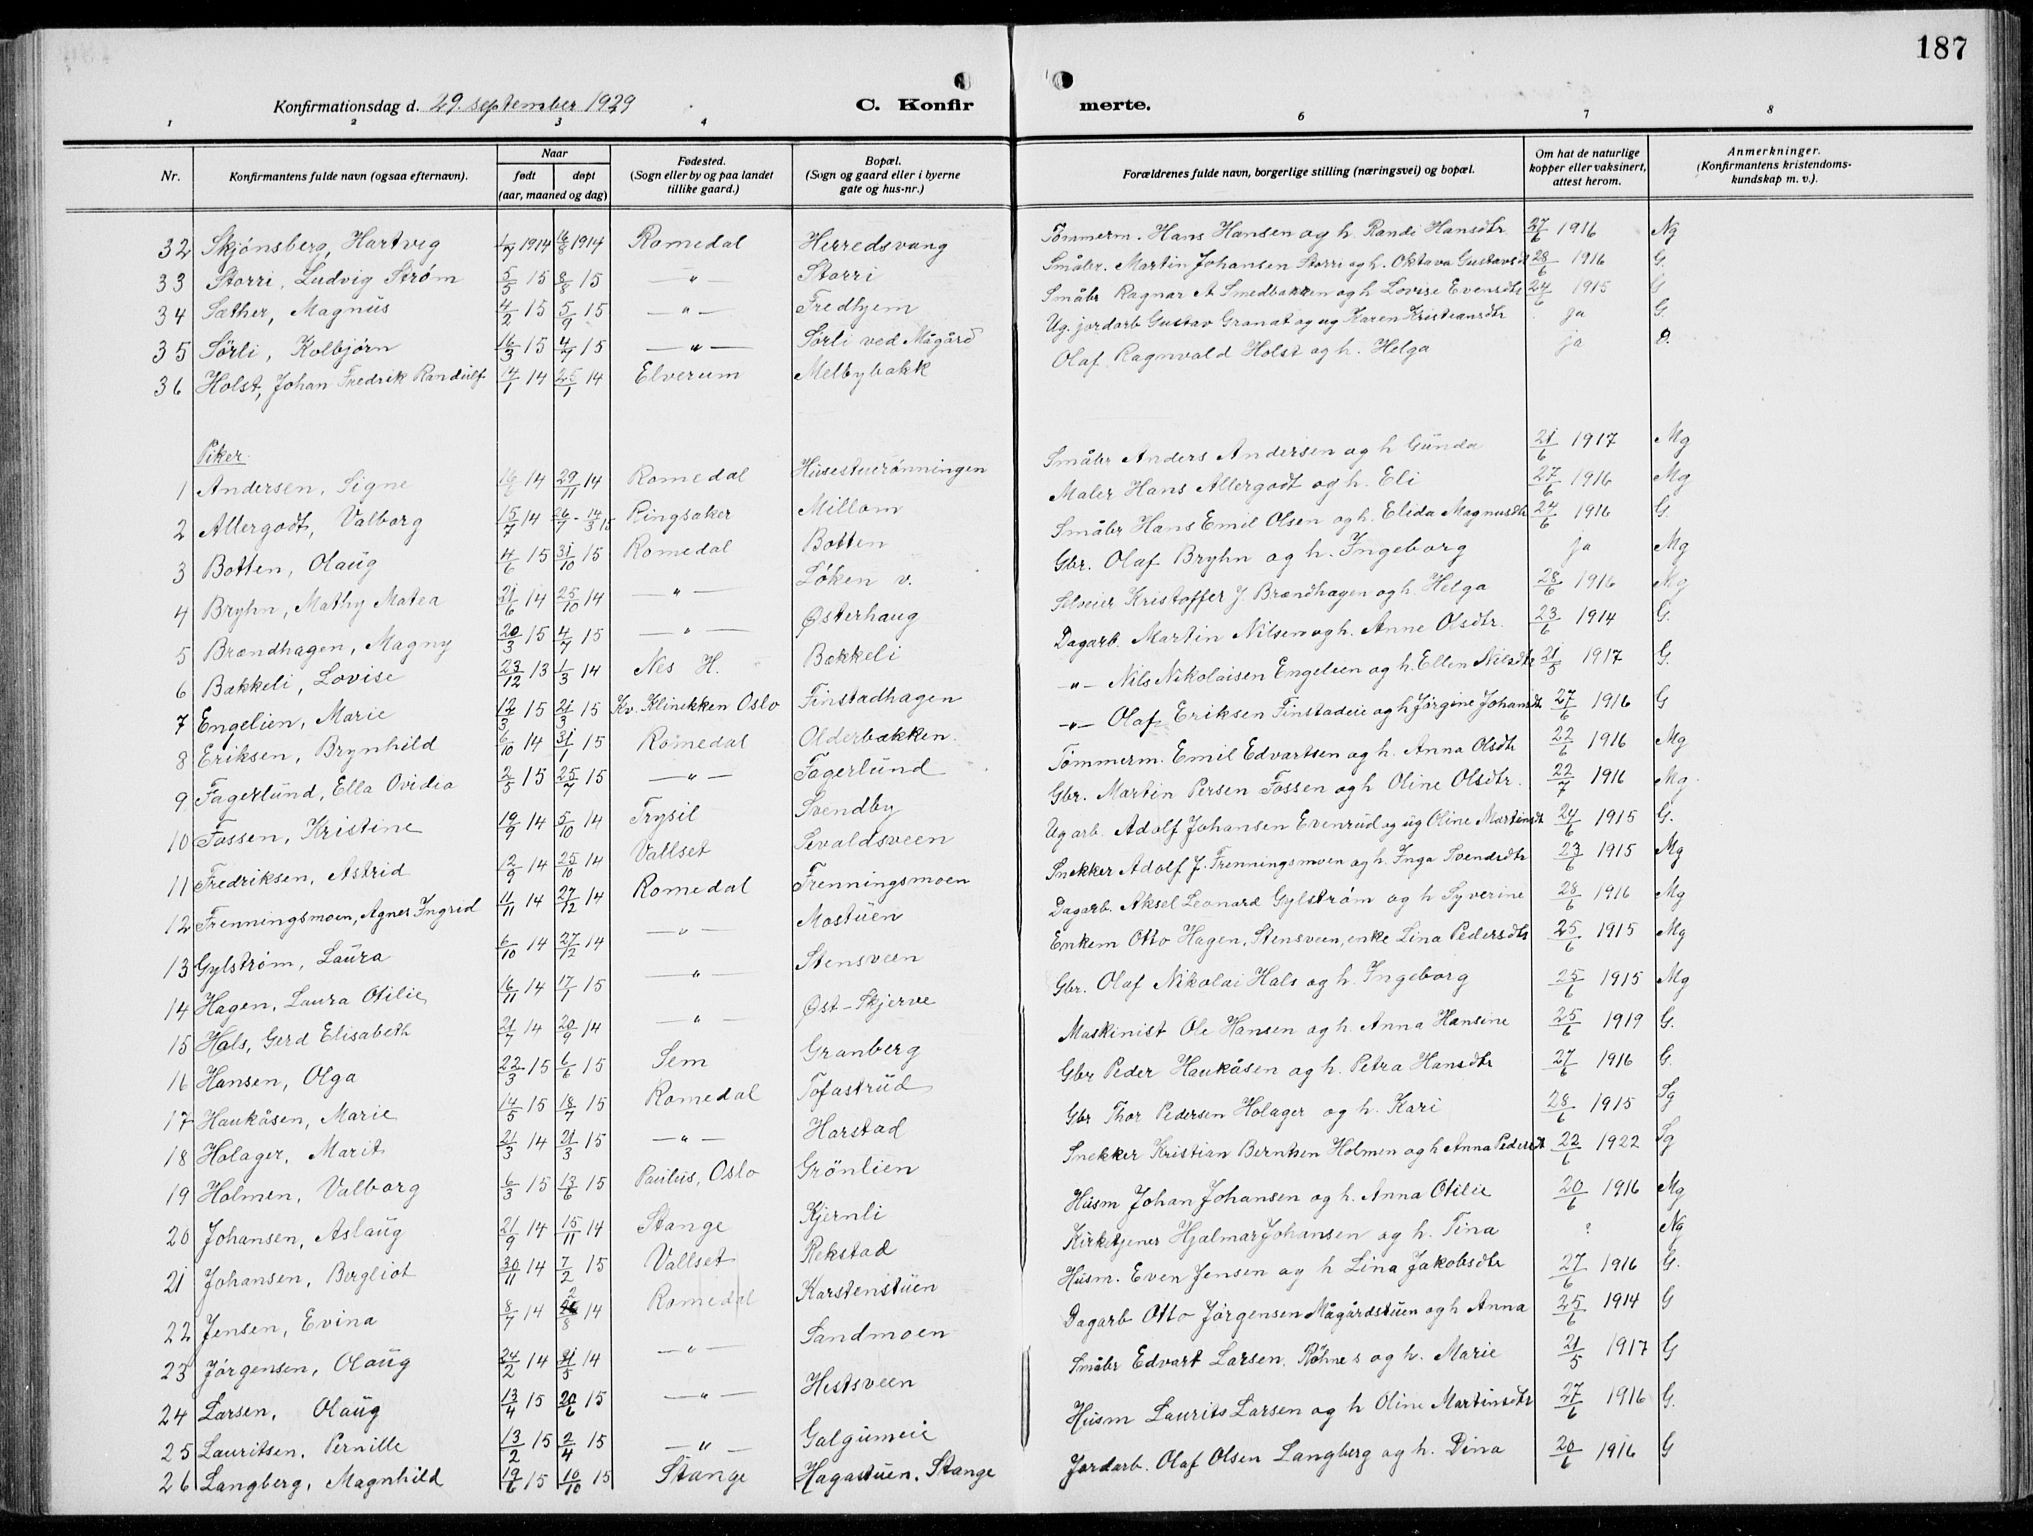 187
Konfirmationsdag d. 29. september 1929 C. Konfirmerte.
1 2 3 4 6 7 8
Nr. Konfirmantens fulde navn (ogsaa efternavn). Naar født døpt (aar, maaned og dag) Fødested. (Sogn eller by og paa landet tillike gaard.) Bopæl. (Sogn og gaard eller i byerne gate og hus-nr.) Forældrenes fulde navn, borgerlige stilling (næringsvei) og bopæl. Om hat de naturlige kopper eller vaksinert, attest herom. Anmerkninger. (Konfirmantens kristendoms-kundskap m. v.).
32 Skjønsberg, Hartvig 1/7 1914 16/8 1914 Romedal Herredsvang Tømmerm. Hans Hansen og h. Randi Hansdtr 27/6 1916 Ng
33 Storri, Ludvig Strøm 5/5 15 8/8 15 —"— Storri Småbr. Martin Johansen Storri og h. Oktava Gustavsdt 28/6 1916 G.
34 Sæther, Magnus 4/2 15 5/9 15 —"— Fredhjem Småbr Ragnar A Smedbakken og h Lovise Evensdtr 24/6 1915 G
35 Sørli, Kolbjørn 16/3 15 4/7 15 —"— Sørli ved Mågård Ug. jordarb Gustav Granat og ug Karen Kristiansdtr ja G.
36 Holst, Johan Fredrik Randulf 14/1 14 25/1 14 Elverum Melbybakk Olaf Ragnvald Holst og h. Helga ja
Piker.
1 Andersen, Signe 14 29/11 14 Romedal Husestuerønningen Småbr Anders Andersen og h Gunda 21/6 1917 Mg
2 Allergodt, Valborg 15/7 14 26/7 - 14/3 15 Ringsaker Millom Maler Hans Allergodt og h. Eli 27/6 1916 Mg
3 Botten, Olaug 4/6 15 31/10 15 Romedal Botten Småbr Hans Emil Olsen og h. Elida Magnusdtr 24/6 1916 G.
4 Bryhn, Mathy Matea 21/6 14 25/10 14 —"— Løken v. Gbr. Olaf Bryhn og h. Ingeborg ja Mg
5 Brændhagen, Magny 20/3 15 4/7 15 —"— Østerhaug Selveier Kristoffer J. Brændhagen og h. Helga 28/6 1916 Mg
6 Bakkeli, Lovise 23/12 13 1/3 14 Nes H. Bakkeli Dagarb. Martin Nilsen og h. Anne Olsdtr. 23/6 1914 G.
7 Engelien, Marie 12/3 15 21/3 15 Kv. Klinikken Oslo Finstadhagen —"— Nils Nikolaisen Engelien og h. Ellen Nilsdtr 21/5 1917 G.
8 Eriksen, Brynhild 6/10 14 31/1 15 Romedal Olderbakken. —"— Olaf Eriksen Finstadeie og h Jørgine Johansdt 27/6 1916 G
9 Fagerlund, Ella Ovidia 2/5 15 25/7 15 —"— Fagerlund Tømmerm. Emil Edvartsen og h. Anna Olsdtr 22/6 1916 Mg
10 Fossen, Kristine 19/9 14 5/10 14 Trysil Svendby Gbr. Martin Persen Fossen og h Oline Olsdtr. 22/7 1916 Mg.
11 Fredriksen, Astrid 12/9 14 25/10 14 Vallset Sevaldsveen Ug arb. Adolf Johansen Evenrud og ug Oline Martinsdt 24/6 1915 G.
12 Frenningsmoen, Agnes Ingrid 11/11 14 27/12 14 Romedal Frenningsmoen Snekker Adolf J. Frenningsmoen og h. Inga Svendsdtr 23/6 1915 Mg
13 Gylstrøm, Laura 6/10 14 27/12 14 —"— Mostuen Dagarb. Aksel Leonard Gylstrøm og h Syverine 28/6 1916 Mg
14 Hagen, Laura Otilie 16/11 14 17/1 15 —"— Stensveen Enkem Otto Hagen, Stensveen, enke Lina Pedersdtr 25/6 1915 Mg
15 Hals, Gerd Elisabeth 21/7 14 20/9 14 —"— Øst-Skjerve Gbr. Olaf Nikolai Hals og h. Ingeborg 25/6 1915 Mg
16 Hansen, Olga 22/3 15 6/6 15 Sem Granberg Maskinist Ole Hansen og h Anna Hansine 25/6 1919 G.
17 Haukåsen, Marie 14/5 15 18/7 15 Romedal Tofastrud Gbr Peder Haukåsen og h. Petra Hansdtr 27/6 1916 G.
18 Holager, Marit 21/3 14 21/3 15 —"— Harstad Gbr Thor Pedersen Holager og h. Kari 28/6 1915 Sg
19 Holmen, Valborg 6/3 15 13/6 15 Paulus, Oslo Grönlien Snekker Kristian Berntsen Holmen og h Anna Pedersdt 22/6 1922 Sg
20 Johansen, Aslaug 21/9 14 15/11 14 Stange Kjernli Husm Johan Johansen og h. Anna Otilie 20/6 1916 Mg
21 Johansen, Bergliot 30/11 14 7/2 15 Vallset Rekstad Kirketjener Hjalmar Johansen og h. Tina ? Ng
22 Jensen, Evina 8/7 14 2/8 14 Romedal Karstenstuen Husm. Even Jensen og h Lina Jakobsdtr 27/6 1916 G.
23 Jørgensen, Olaug 24/2 14 31/5 14 —"— Sandmoen Dagarb Otto Jørgensen Mågårdstuen og h Anna 25/6 1914 G
24 Larsen, Olaug 13/4 15 20/6 15 —"— Hestsveen Småbr Edvart Larsen, Röhnes og h. Marie 21/5 1917 G
25 Lauritsen, Pernille 13/2 15 2/4 15 —"— Galgumeie Husm Laurits Larsen og h Oline Martinsdtr 27/6 1916 G.
26 Langberg, Magnhild 19/6 15 10/10 15 Stange Hagastuen, Stange Jordarb. Olaf Olsen Langberg og h. Dina 20/6 1916 G